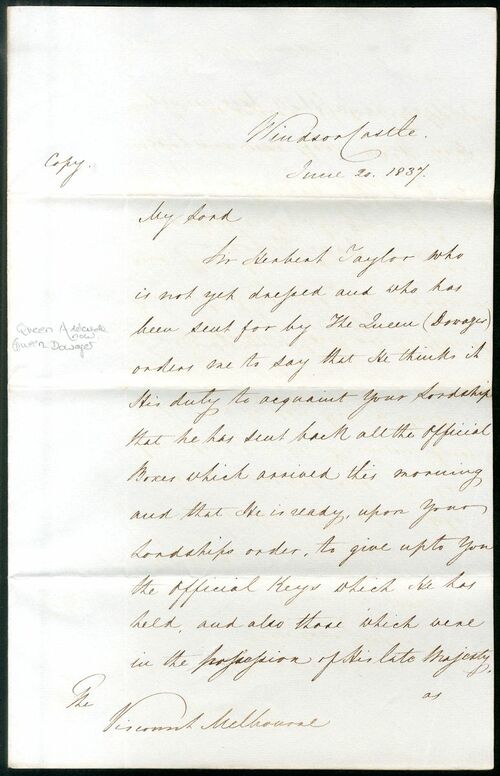 Windsor Castle.
Copy.
June 20. 1837.
My Lord
Sir Herbert Taylor who
is not yet dressed and who has
been sent for by The Queen (Dowager)
orders me to say that He thinks it
His duty to acquaint Your Lordship
that he has sent back all the Official
Boxes which arrived this morning
and that He is ready, upon Your
Lordships order, to give up to You
the Official Keys which He has
held, and also those which were
in the possession of His late Majesty,
as
The
Viscount Melbourne
Queen Adelaide
now
Queen Dowager